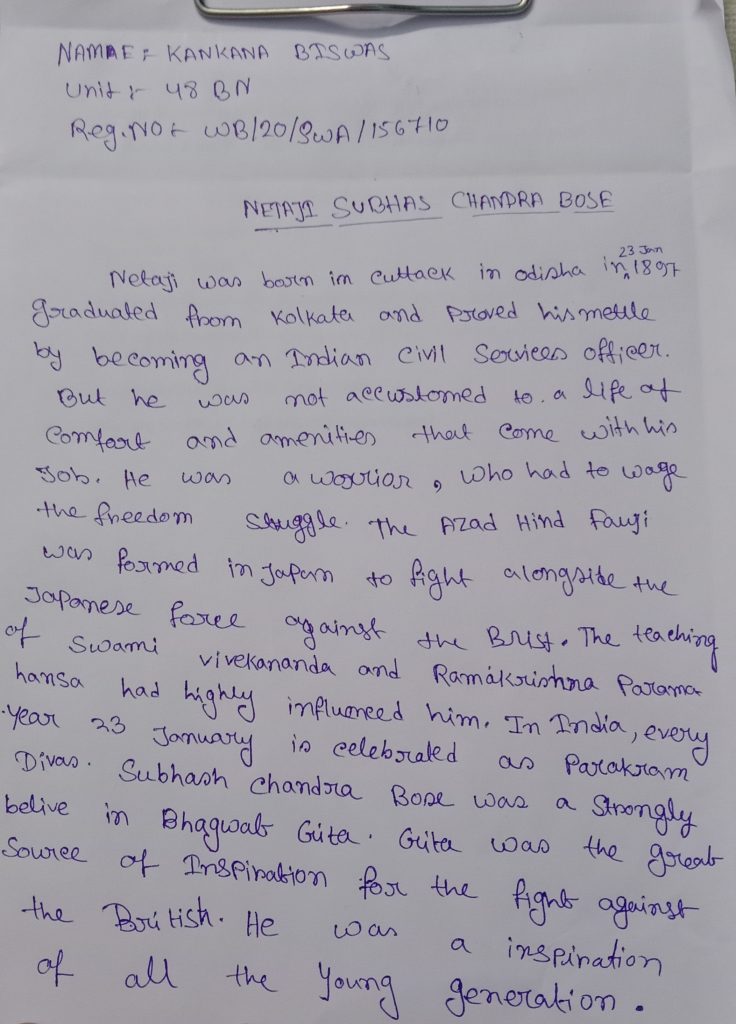 NAMAE :- KANKANA BISWAS
Unit :- 48 BN
Reg. NO :- WB/20/SWA/156710
NETAJI SUBHAS CHANDRA BOSE
Netaji was born in Cuttack in odisha in 23 Jan 1897
graduated from Kolkata and Proved his mettle
by becoming an Indian Civil Services officer.
But he was not accustomed to a life of
Comfort and amenities that Come with his
Job. He was a worrior, who had to wage
the freedom struggle. The Azad Hind Fauji
was formed in Japan to fight alongside the
Japanese force against the Brist. The teaching
of Swami vivekananda and Ramakrishna Parama
hansa had highly influenced him. In India, every
Year 23 January is celebrated as Parakram
Divas. Subhash Chandra Bose was a Strongly
belive in Bhagwat Gita. Gita was the great
Source of Inspiration for the fight against
the British. He was a inspiration
of all the Young generation.